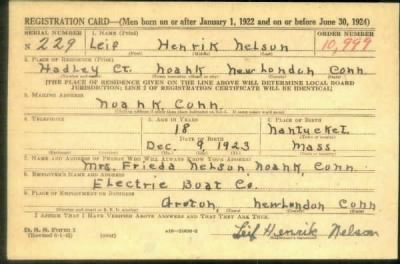 REGISTRATION CARD—(Men born on or after January 1, 1922 and on or before June 30, 1924)
SERIAL NUMBER 1. NAME (Print) ORDER NUMBER
N 229 Leif Henrik Nelson 10,999
(First) (Middle) (Last)
2. PLACE OF RESIDENCE (Print)
Hadley Ct. Noank New London Conn
[THE PLACE OF RESIDENCE GIVEN ON THE LINE ABOVE WILL DETERMINE LOCAL BOARD
JURISDICTION; LINE 2 OF REGISTRATION CERTIFICATE WILL BE IDENTICAL]
3. MAILING ADDRESS
Noank Conn.
4. TELEPHONE 5. AGE IN YEARS 6. PLACE OF BIRTH
18 Nantucket
DATE OF BIRTH
Dec. 9, 1923 Mass.
7. NAME AND ADDRESS OF PERSON WHO WILL ALWAYS KNOW YOUR ADDRESS
Mrs. Frieda Nelson, Noank, Conn.
8. EMPLOYER'S NAME AND ADDRESS
Electric Boat Co.
9. PLACE OF EMPLOYMENT OR BUSINESS
Groton, New London Conn
I AFFIRM THAT I HAVE VERIFIED ABOVE ANSWERS AND THAT THEY ARE TRUE.
D. S. S. Form 1 (over)
Leif Henrik Nelson